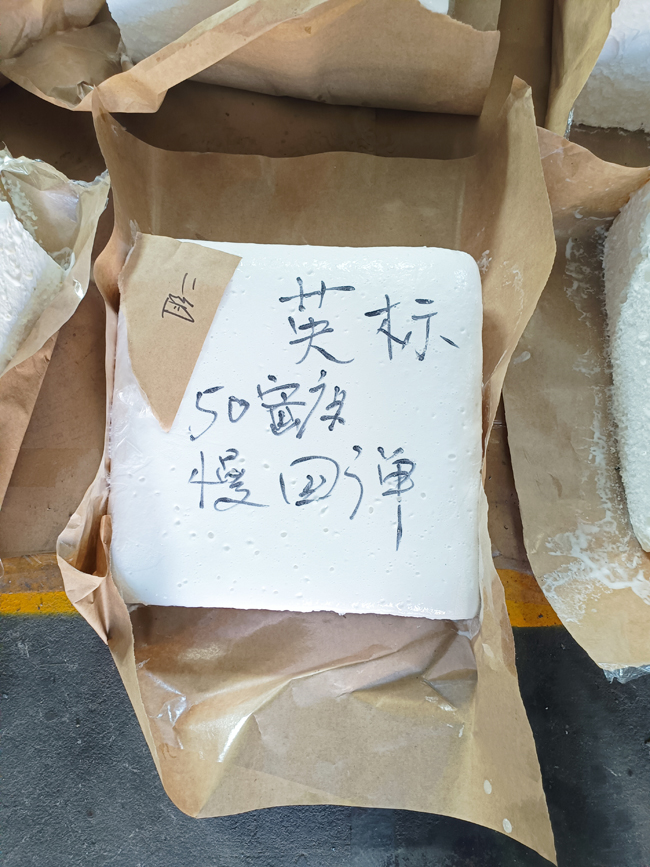 二组
英标
50密度
慢回弹